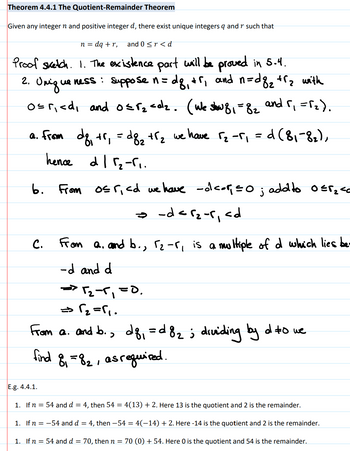 Theorem 4.4.1 The Quotient-Remainder Theorem
Given any integer n and positive integer d, there exist unique integers q and r such that
n = dq + r, and 0 ≤ r < d
Proof sketch. 1. The existence part will be proved in 5.4.
2. Uniqueness : suppose n = dq₁ + r₁ and n = dq₂ + r₂ with
0 ≤ r₁ < d, and 0 ≤ r₂ < d₂. (We show q₁ = q₂ and r₁ = r₂).
a. From dq₁ + r₁ = dq₂ + r₂ we have r₂ - r₁ = d(q₁ - q₂),
hence d | r₂ - r₁.
b. From 0 ≤ r₁ < d we have -d < -r₁ ≤ 0 ; add to 0 ≤ r₂ <
⇒ -d < r₂ - r₁ < d
c. From a. and b., r₂ - r₁ is a multiple of d which lies be
-d and d
⇒ r₂ - r₁ = 0.
⇒ r₂ = r₁.
From a. and b., dq₁ = dq₂ ; dividing by d ≠ 0 we
find q₁ = q₂, as required.
E.g. 4.4.1.
1. If n = 54 and d = 4, then 54 = 4(13) + 2. Here 13 is the quotient and 2 is the remainder.
1. If n = -54 and d = 4, then -54 = 4(-14) + 2. Here -14 is the quotient and 2 is the remainder.
1. If n = 54 and d = 70, then n = 70 (0) + 54. Here 0 is the quotient and 54 is the remainder.